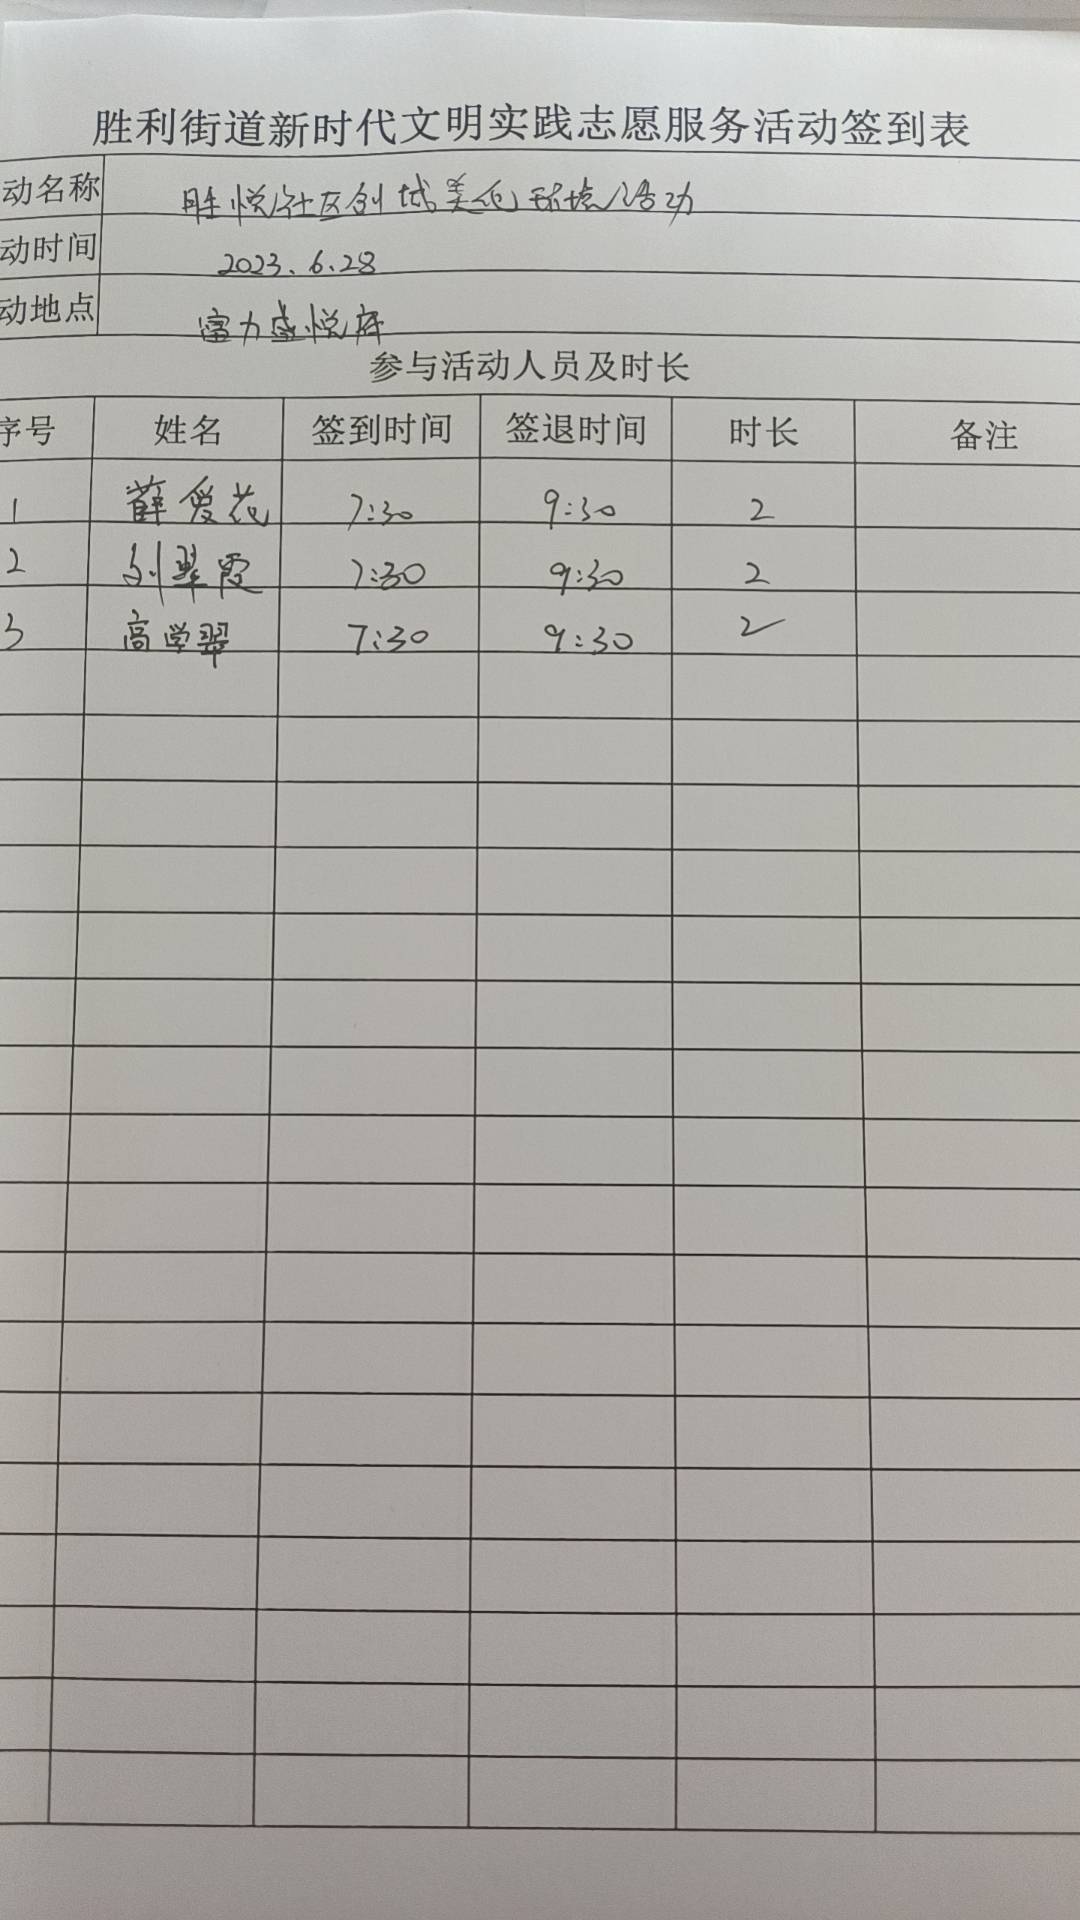 胜利街道新时代文明实践志愿服务活动签到表
动名称 胜悦社区创城美化环境活动
动时间 2023.6.28
动地点 富力盛悦府
参与活动人员及时长
序号 姓名 签到时间 签退时间 时长 备注
1 薛爱花 7:30 9:30 2
2 刘翠霞 7:30 9:30 2
3 高学翠 7:30 9:30 2